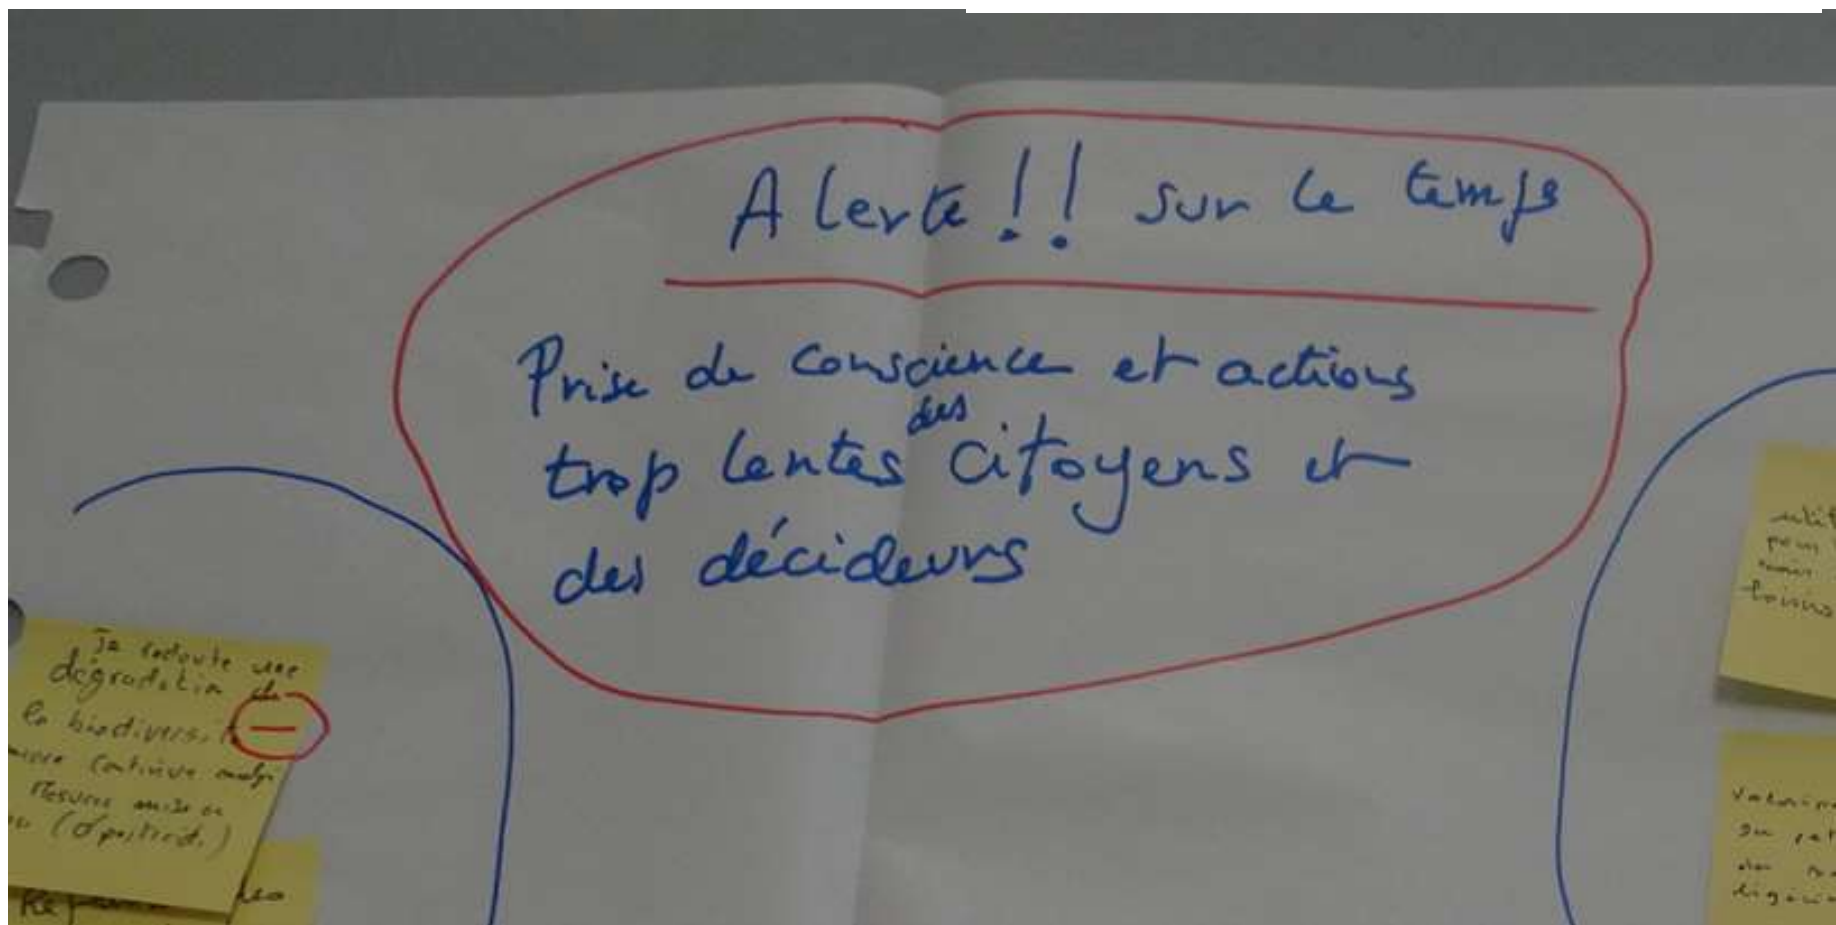 Alerte !! sur le temps
Prise de conscience et actions
trop lentes des citoyens et
des décideurs
Je redoute une
dégradation de
la biodiversité
continue malgré
mesures mise en
pour
loisirs